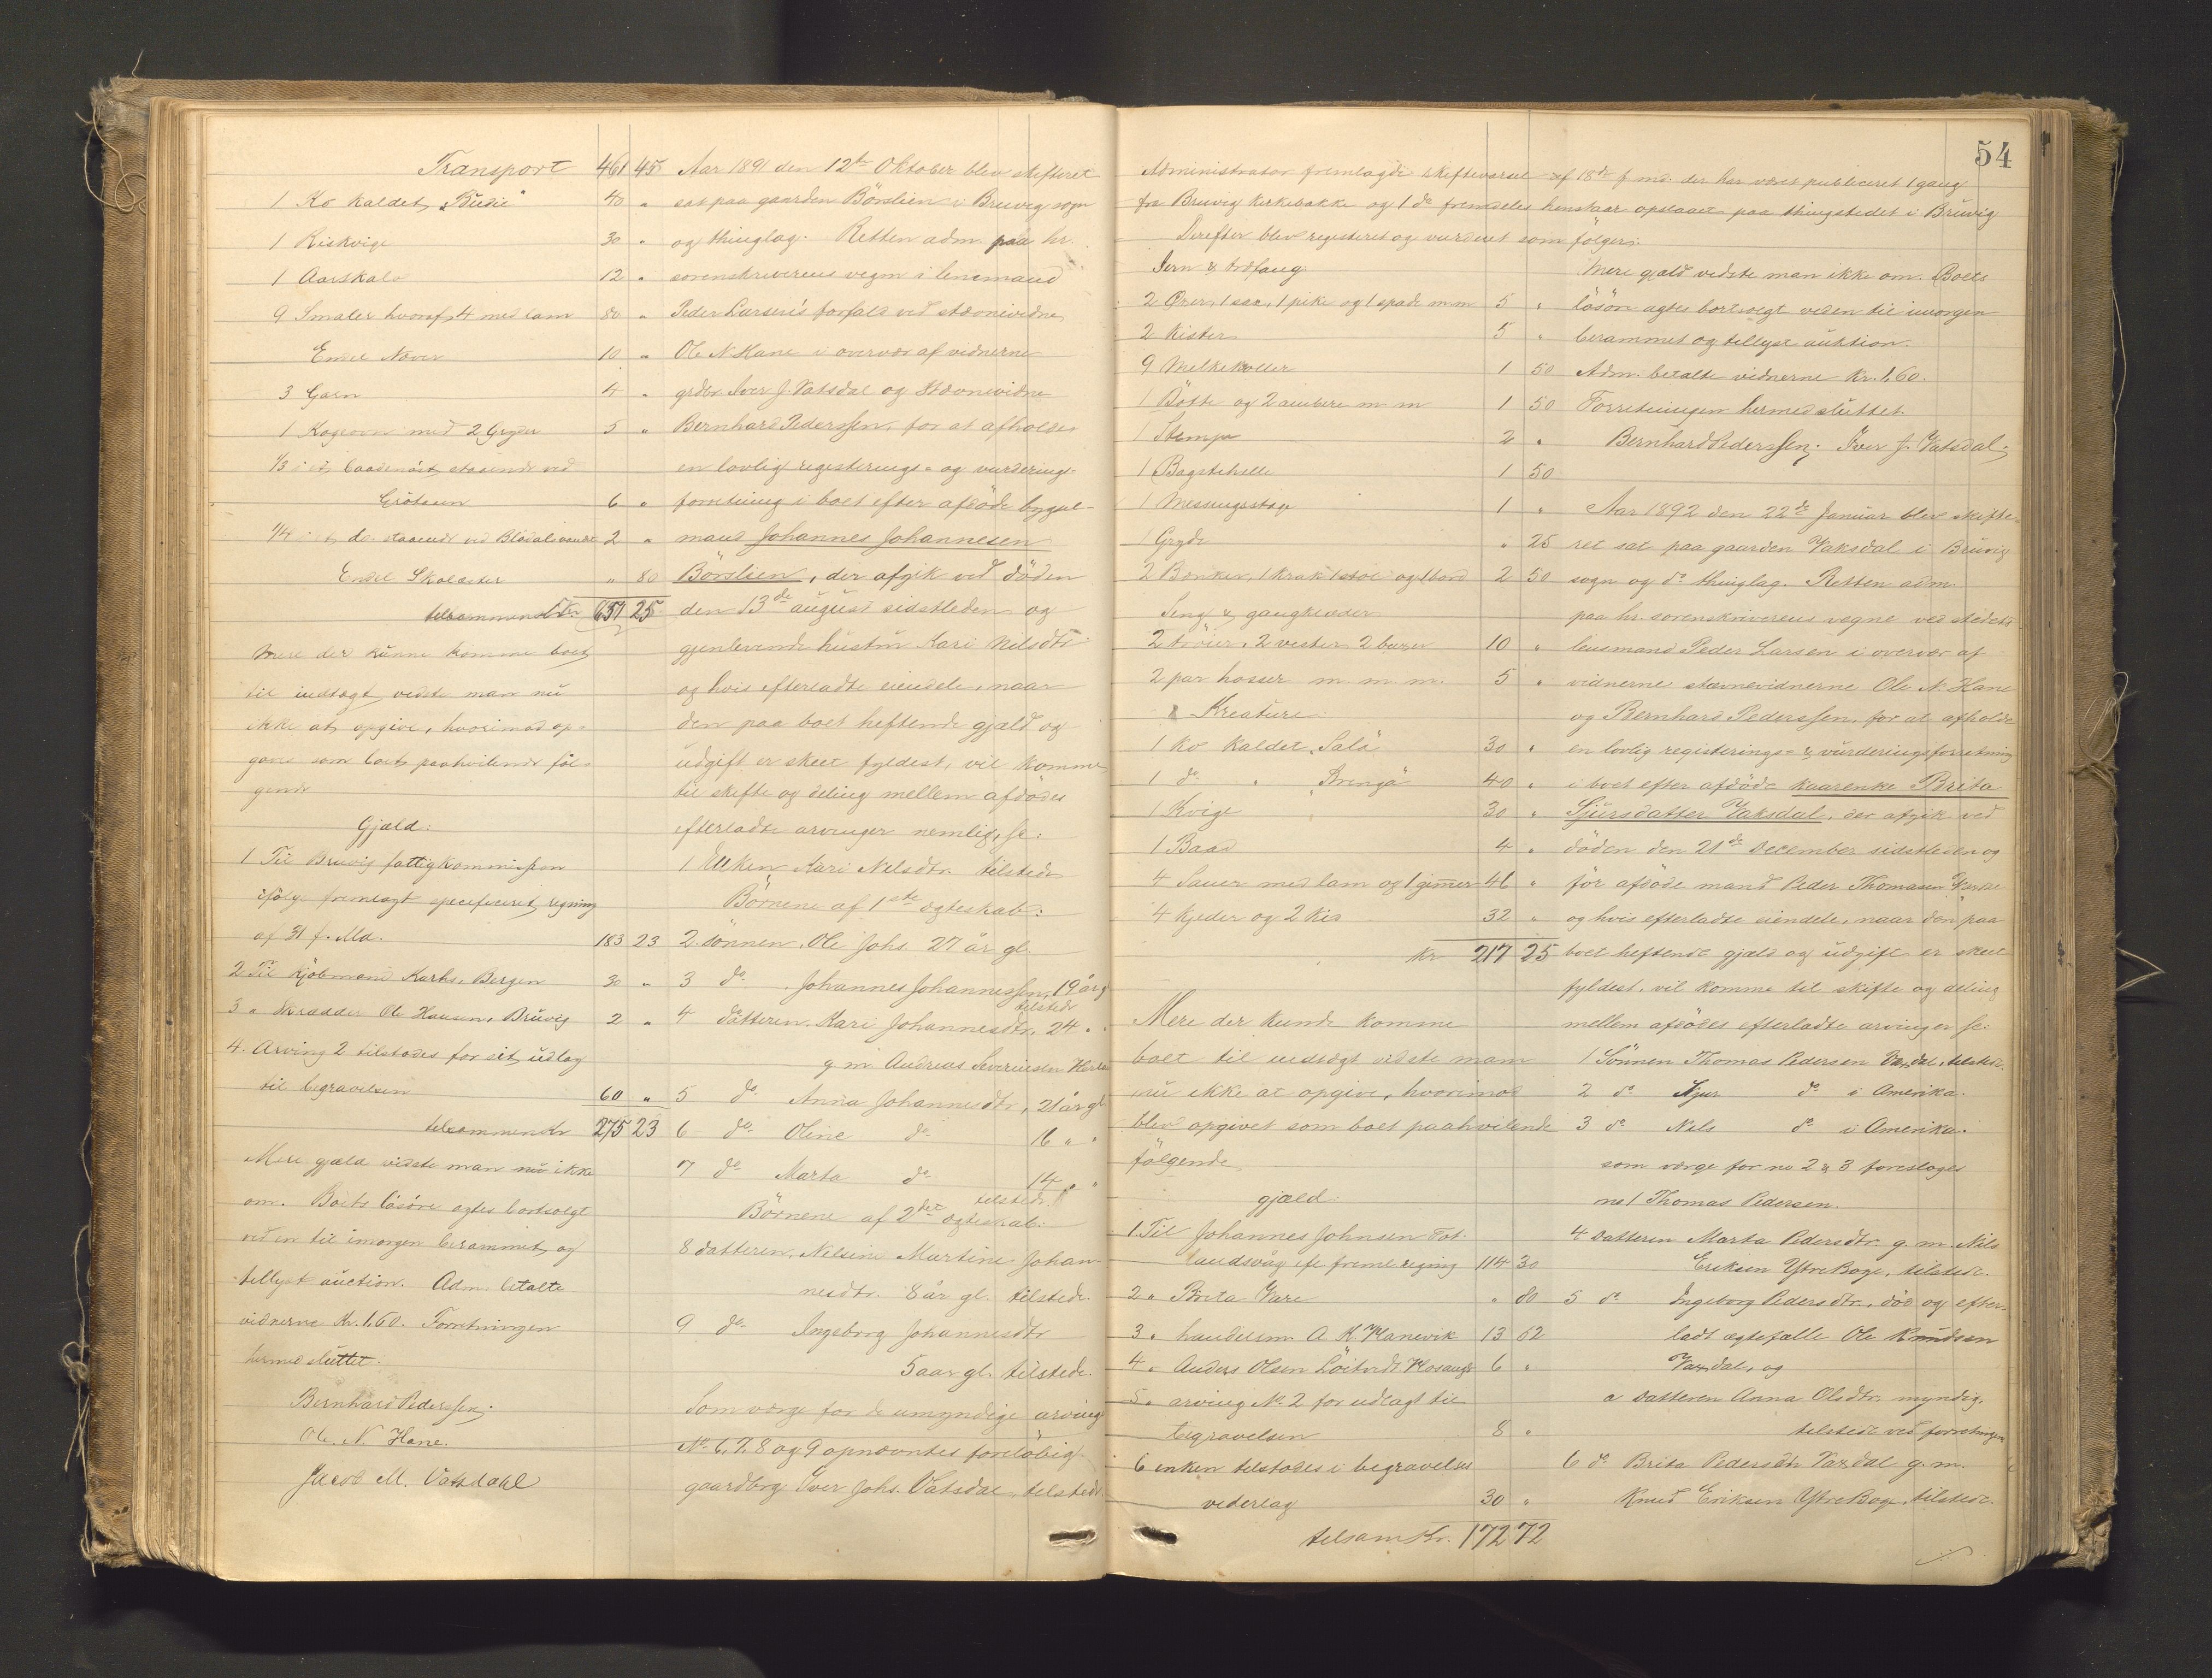 Transport 461 45
1 Ko kaldet "Budei" 40 "
1 Kiskvige 30 "
1 Aarskalv 12 "
9 Smaler hvoraf 4 med lam 80 "
Endel Næver 10 "
3 Garn 4 "
1 Kogeovn med 2 Gryder 5 "
1/3 i et baadenøst staaende ved
6 "
1/4 i et do staaende ved Blødalsvandet 2 "
Endel " 80
tilsammen Kr. 651 25
Mere der kunne komme boet
til indtægt vidste man nu
ikke at opgive, hvorimod op-
gaves som boet paahvilende føl-
gende
Gjæld:
1 Til Bruvig fattigkommission
ifølge fremlagt specificeret regning
af 31 f. Md. 183 23
2 Til Kjøbmand Bergen 30 "
3 " Skrædder Ole Hansen, Bruvig 2 "
4. Arving 2 tilstodes for sit udlæg
til begravelsen 60 "
tilsammen Kr 275 23
Mere gjæld vidste man nu ikke
om. Boets løsøre agtes bortsolgt
ved en til imorgen berammet og
tillyst auction. Adm. betalte
vidnerne Kr. 1,60. Forretningen
hermed sluttet.
Bernhard Pederssen.
Ole N. Hane.
Jacob M. Vatsdahl
Aar 1891 den 12te Oktober blev skifteret
sat paa gaarden Börslien i Bruvig sogn
og thinglag. Retten adm. paa hr.
sorenskriverens vegne i lensmand
Peder Larsens forfald ved stævnevidne
Ole N Hane i overvær af vidnerne
grdbr. Iver J. Vatsdal og Stævnevidne
Bernhard Pederssen, for at afholde
en lovlig registerings- og vurderings-
forretning i boet efter afdøde bygsel-
mand Johannes Johannesen
Börslien, der afgik ved døden
den 13de august sidstleden og
gjenlevende hustru Kari Nilsdtr
og hvis efterladte eiendele, naar
den paa boet heftende gjæld og
udgift er skeet fyldest, vil komme
til skifte og deling mellem afdødes
efterladte arvinger nemlig se:
1 Enken Kari Nilsdtr. tilstede
Börnene af 1ste ægteskab:
2. sönnen, Ole Johs 27 år gl.
3 do. Johannes Johannessen, 19 år g
tilstede
4 datteren, Kari Johannesdtr, 24 " "
g m Andreas Severinsen
5 do Anna Johannesdtr, 21 år gl
6 do Oline do 16 " "
7 do Marta do 14 " "
tilstede
Börnene af 2det ægteskab:
8 datteren, Nilsine Martine Johan
nesdtr. 8 år gl. tilstede.
9 do Ingeborg Johannesdtr
5 aar gl. tilstede.
Som værge for de umyndige arving
No 6, 7, 8 og 9 opnævntes foreløbig
gaardbrg Iver Johs. Vatsdal, tilstede.
54
Administrator fremlagde skiftevarsel af 18de f. md. der har været publiceret 1 gang
fra Bruvig Kirkebakke og 1 do fremdeles henstaar opslaaet paa thingstedet i Bruvig
Derefter blev registeret og vurderet som følger:
Jern & trefang
2 Øxer, 1 sag, 1 pike og 1 spade m m 5 "
2 Kister 5 "
9 Melkekoller 1 50
1 Bøtte og 2 ambere m m 1 50
1 Stampe 2 "
1 Bagstehelle 1 50
1 Messingstage 1 "
1 Gryde " 25
2 Bænker, 1 krak 1 stol og 1 bord 2 50
Seng & gangklæder
2 trøier, 2 vester, 2 buxer 10 "
2 par hosser m m m. 5 "
Kreature
1 Ko kaldet "Salä" 30 "
1 do " "Kringä" 40 "
1 Kvige 30 "
1 Baad 4 "
4 Sauer med lam og 1 gimmer 46 "
4 kjeder og 2 kid 32 "
Kr 217 25
Mere der kunde komme
boet til indtægt vidste man
nu ikke at opgive, hvorimod
blev opgivet som boet paahvilende
følgende
gjæld.
1. Til Johannes Johnsen Tot-
landsvåg ifl freml. regning 114 30
2 " Brita Gare " 80
3 " handelsm. A. K. Hanevik 13 62
4 " Anders Olsen Hosanger 6 "
5 " arving No 2 for udlagt til
begravelsen 8 "
6 enken tilstodes i begravelses
vederlag 30 "
tilsam Kr. 172 72
Mere gjæld vidste man ikke om. Boets
løsøre agtes bortsolgt ved en til imorgen
berammet og tillyst auktion.
Adm. betalte vidnerne Kr. 1,60.
Forretningen hermed sluttet.
Bernhard Pederssen. Iver J. Vatsdal.
Aar 1892 den 22de Januar blev skifte-
ret sat paa gaarden Vaksdal i Bruvig
sogn og do thinglag. Retten adm.
paa hr. sorenskriverens vegne ved stedets
lensmand Peder Larsen i overvær af
vidnerne stævnevidnerne Ole N. Hane
og Bernhard Pederssen, for at afholde
en lovlig registerings- & vurderingsforretning
i boet efter afdøde kaarenke Brita
Sjursdatter Vaksdal, der afgik ved
døden den 21de December sidstleden og
før afdøde mand Peder Thomasen
og hvis efterladte eiendele, naar den paa
boet heftende gjæld og udgift er skeet
fyldest, vil komme til skifte og deling
mellem afdødes efterladte arvinger se:
1 Sønnen Thomas Pedersen Vaxdal, tilstede.
2 do Sjur do i Amerika.
3 do Nils do i Amerika.
som værge for no 2 & 3 foreslåges
no 1 Thomas Pedersen.
4 Datteren Marta Pedersdtr. g. m. Nils
Eriksen Ytre Boge, tilstede.
5 do Ingeborg Pedersdtr., död og efter-
ladt ægtefælle Ole Knudsen
Vaxdal, og
a Datteren Anna Olsdtr. myndig,
tilstede ved forretningen
6 do Brita Pedersdtr Vaxdal g. m.
Knud Eriksen Ytre Boge, tilstede.